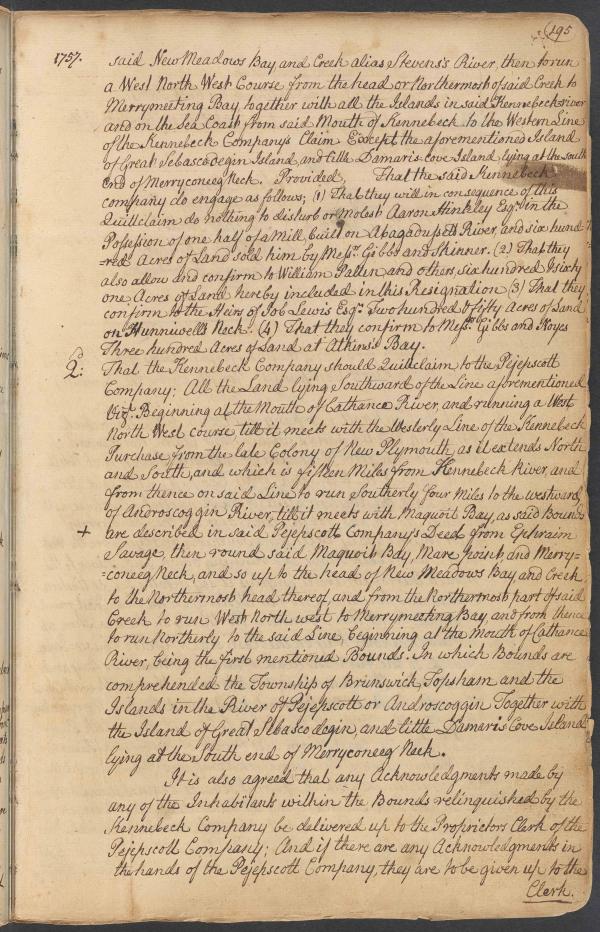 195
1757. said New Meadows Bay and Creek alias Stevens's River, then to run
a West North West Course from the head or Northermost of said Creek to
Merrymeeting Bay together with all the Islands in said Kennebeck river
and on the Sea Coast from said Mouth of Kennebeck to the Western Line
of the Kennebeck Company's Claim Except the aforementioned Island
of Great Sebascodegin Island, and little Damaris Cove Island lying at the south
End of Merryconeeg Neck. Provided, That the said Kennebeck
company do engage as follows; (1) That they will in consequence of this
Quillclaim do nothing to disturb or molest Aaron Hinkley Esqr. in the
Possession of one half of a Mill, built on Abagadussets River, and six hund-
=red Acres of Land sold him by Messrs. Gibbs and Skinner. (2) That they
also allow and confirm to William Patten, and others, six hundred & sixty
one Acres of Land hereby included in this Resignation (3) That they
confirm to the Heirs of Job Lewis Esqr. Two hundred & fifty Acres of Land
on Hunniwells Neck. (4) That they confirm to Messrs. Gibbs and Noyes
Three hundred Acres of Land at Atkins's Bay.
2: That the Kennebeck Company should Quillclaim to the Pejepscott
Company; All the Land lying Southward of the Line aforementioned
Vizt. Beginning at the Mouth of Cathance River, and running a West
North West course, till it meets with the Westerly Line of the Kennebeck
Purchase from the late Colony of New Plymouth, as it extends North
and South, and which is fifteen Miles from Kennebeck River, and
from thence on said Line to run Southerly four Miles to the westward,
of Androscoggin River, till it meets with Maquoit Bay, as said Bounds
+ are described in said Pejepscott Company's Deed from Ephraim
Savage, then round said Maquoit Bay, Mare point, and Merry=
=coneeg Neck, and so up to the head of New Meadows Bay and Creek
to the Northermost head thereof, and from the Northermost part of said
Creek to run West North west to Merrymeeting Bay, and from thence
to run Northerly to the said Line, beginning at the Mouth of Cathance
River, being the first mentioned Bounds. In which Bounds are
comprehended the Township of Brunswick, Topsham and the
Islands in the River of Pejepscott or Androscoggin Together with
the Island of Great Sebascodegin, and little Damaris Cove Island
lying at the South end of Merryconeeg Neck.
It is also agreed that any Acknowledgments made by
any of the Inhabitants within the Bounds relinquished by the
Kennebeck Company be delivered up to the Proprietors Clerk of the
Pejepscott Company; And if there are any Acknowledgments in
the hands of the Pejepscott Company, they are to be given up to the
Clerk.